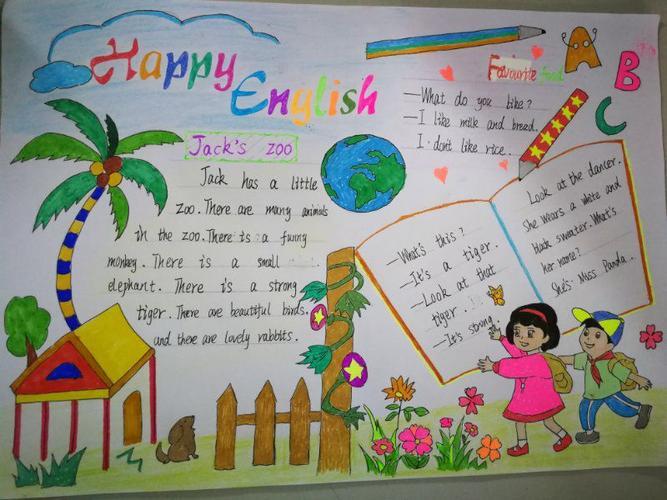 Happy
English
Favourite food
—What do you like?
—I like milk and breed.
I don't like rice.
A
B
C
Jack's zoo
Jack has a little
zoo. There are many animals
in the zoo. There is a funny
monkey. There is a small
elephant. There is a strong
tiger. There are beautiful birds.
and there are lovely rabbits.
—What's this?
—It's a tiger.
—Look at that
tiger.
—It's strong.
Look at the dancer.
She wears a white and
black sweater. What's
her name?
She's Miss Panda.